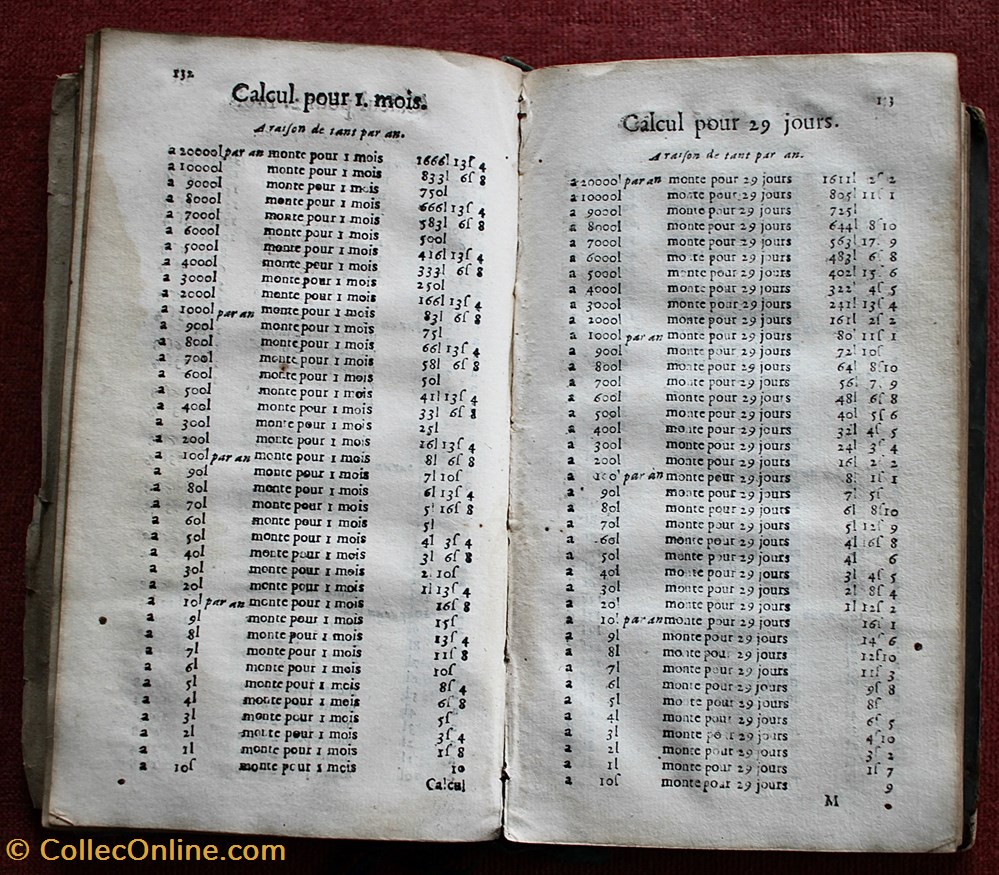 132
Calcul pour 1. mois.
A raison de tant par an.
a 20000l par an monte pour 1 mois 1666l 13ſ 4
a 10000l monte pour 1 mois 833l 6ſ 8
a 9000l monte pour 1 mois 750l
a 8000l monte pour 1 mois 666l 13ſ 4
a 7000l monte pour 1 mois 583l 6ſ 8
a 6000l monte pour 1 mois 500l
a 5000l monte pour 1 mois 416l 13ſ 4
a 4000l monte pour 1 mois 333l 6ſ 8
a 3000l monte pour 1 mois 250l
a 2000l monte pour 1 mois 166l 13ſ 4
a 1000l par an monte pour 1 mois 83l 6ſ 8
a 900l monte pour 1 mois 75l
a 800l monte pour 1 mois 66l 13ſ 4
a 700l monte pour 1 mois 58l 6ſ 8
a 600l monte pour 1 mois 50l
a 500l monte pour 1 mois 41l 13ſ 4
a 400l monte pour 1 mois 33l 6ſ 8
a 300l monte pour 1 mois 25l
a 200l monte pour 1 mois 16l 13ſ 4
a 100l par an monte pour 1 mois 8l 6ſ 8
a 90l monte pour 1 mois 7l 10ſ
a 80l monte pour 1 mois 6l 13ſ 4
a 70l monte pour 1 mois 5l 16ſ 8
a 60l monte pour 1 mois 5l
a 50l monte pour 1 mois 4l 3ſ 4
a 40l monte pour 1 mois 3l 6ſ 8
a 30l monte pour 1 mois 2 10ſ
a 20l monte pour 1 mois 1l 13ſ 4
a 10l par an monte pour 1 mois 16ſ 8
a 9l monte pour 1 mois 15ſ
a 8l monte pour 1 mois 13ſ 4
a 7l monte pour 1 mois 11ſ 8
a 6l monte pour 1 mois 10ſ
a 5l monte pour 1 mois 8ſ 4
a 4l monte pour 1 mois 6ſ 8
a 3l monte pour 1 mois 5ſ
a 2l monte pour 1 mois 3ſ 4
a 1l monte pour 1 mois 1ſ 8
a 10ſ monte pour 1 mois 10
Calcul
1 3
Calcul pour 29 jours.
A raison de tant par an.
a 20000l par an monte pour 29 jours 1611l 2ſ 2
a 10000l monte pour 29 jours 805l 11ſ 1
a 9000l monte pour 29 jours 725l
a 8000l monte pour 29 jours 644l 8ſ 10
a 7000l monte pour 29 jours 563l 17. 9
a 6000l monte pour 29 jours 483l 6ſ 8
a 5000l monte pour 29 jours 402l 15ſ 6
a 4000l monte pour 29 jours 322l 4ſ 5
a 3000l monte pour 29 jours 241l 13ſ 4
a 2000l monte pour 29 jours 161l 2ſ 2
a 1000l par an monte pour 29 jours 80l 11ſ 1
a 900l monte pour 29 jours 72l 10ſ
a 800l monte pour 29 jours 64l 8ſ 10
a 700l monte pour 29 jours 56l 7. 9
a 600l monte pour 29 jours 48l 6ſ 8
a 500l monte pour 29 jours 40l 5ſ 6
a 400l monte pour 29 jours 32l 4ſ 5
a 300l monte pour 29 jours 24l 3ſ 4
a 200l monte pour 29 jours 16l 2ſ 2
a 100l par an monte pour 29 jours 8l 1ſ 1
a 90l monte pour 29 jours 7l 5ſ
a 80l monte pour 29 jours 6l 8ſ 10
a 70l monte pour 29 jours 5l 12ſ 9
a 60l monte pour 29 jours 4l 16ſ 8
a 50l monte pour 29 jours 4l 6
a 40l monte pour 29 jours 3l 4ſ 5
a 30l monte pour 29 jours 2l 8ſ 4
a 20l monte pour 29 jours 1l 12ſ 2
a 10l par an monte pour 29 jours 16ſ 1
a 9l monte pour 29 jours 14ſ 6
a 8l monte pour 29 jours 12ſ 10
a 7l monte pour 29 jours 11ſ 3
a 6l monte pour 29 jours 9ſ 8
a 5l monte pour 29 jours 8ſ
a 4l monte pour 29 jours 6ſ 5
a 3l monte pour 29 jours 4ſ 10
a 2l monte pour 29 jours 3ſ 2
a 1l monte pour 29 jours 1ſ 7
a 10ſ monte pour 29 jours 9
M
© CollecOnline.com